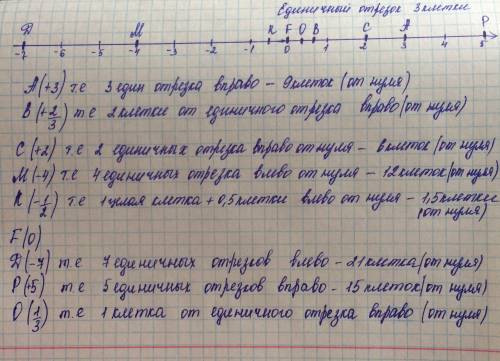 Единичный отрезок 3 клетки
Д М К F O B C A P
-7 -6 -5 -4 -3 -2 -1 0 1 2 3 4 5
A(+3) т.е 3 един отрезка вправо – 9 клеток (от нуля)
B(+2/3) т.е 2 клетки от единичного отрезка вправо (от нуля)
C(+2) т.е 2 единичных отрезка вправо от нуля – 6 клеток (от нуля)
M(-4) т.е 4 единичных отрезка влево от нуля – 12 клеток (от нуля)
K(-1/2) т.е 1 целая клетка + 0,5 клетки влево от нуля – 1,5 клетки (от нуля)
F(0)
Д(-7) т.е 7 единичных отрезков влево – 21 клетка (от нуля)
P(+5) т.е 5 единичных отрезков вправо – 15 клеток (от нуля)
O(1/3) т.е 1 клетка от единичного отрезка вправо (от нуля)